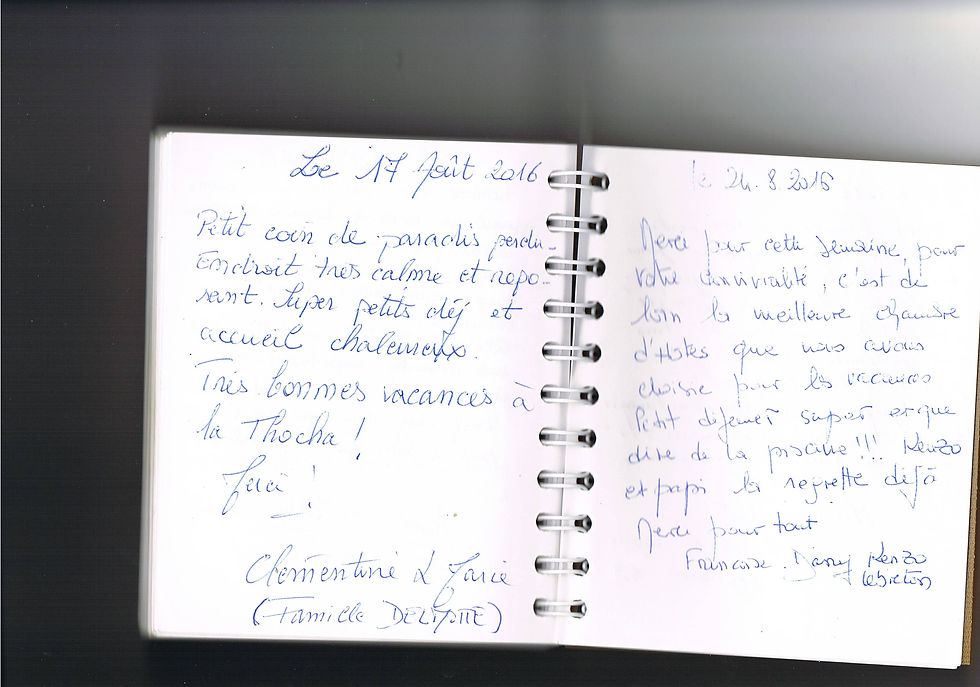 Le 17 Août 2016
Petit coin de paradis perdu.
Endroit très calme et repo-
sant. Super petits déj et
accueil chaleureux.
Très bonnes vacances à
la Thocha !
Clémentine &
(Famille
le 24.8.2016
Merci pour cette semaine, pour
votre convivialité, c'est de
loin la meilleure chambre
d'Hôtes que nous avions
choisie pour les vacances
Petit déjeuner super et que
dire de la piscine !!! Kenzo
et papi la regrette déjà
Merci pour tout
Francoise Kenzo